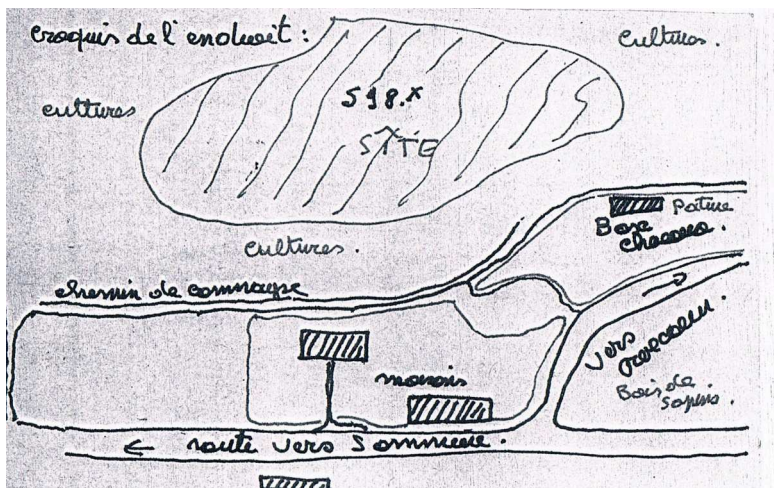 croquis de l'endroit :
cultures.
cultures
518.x
SITE
cultures.
Pature
Base
chasseurs.
chemin de campagne
vers
Bois de
sapins.
marais
← route vers Sommière.